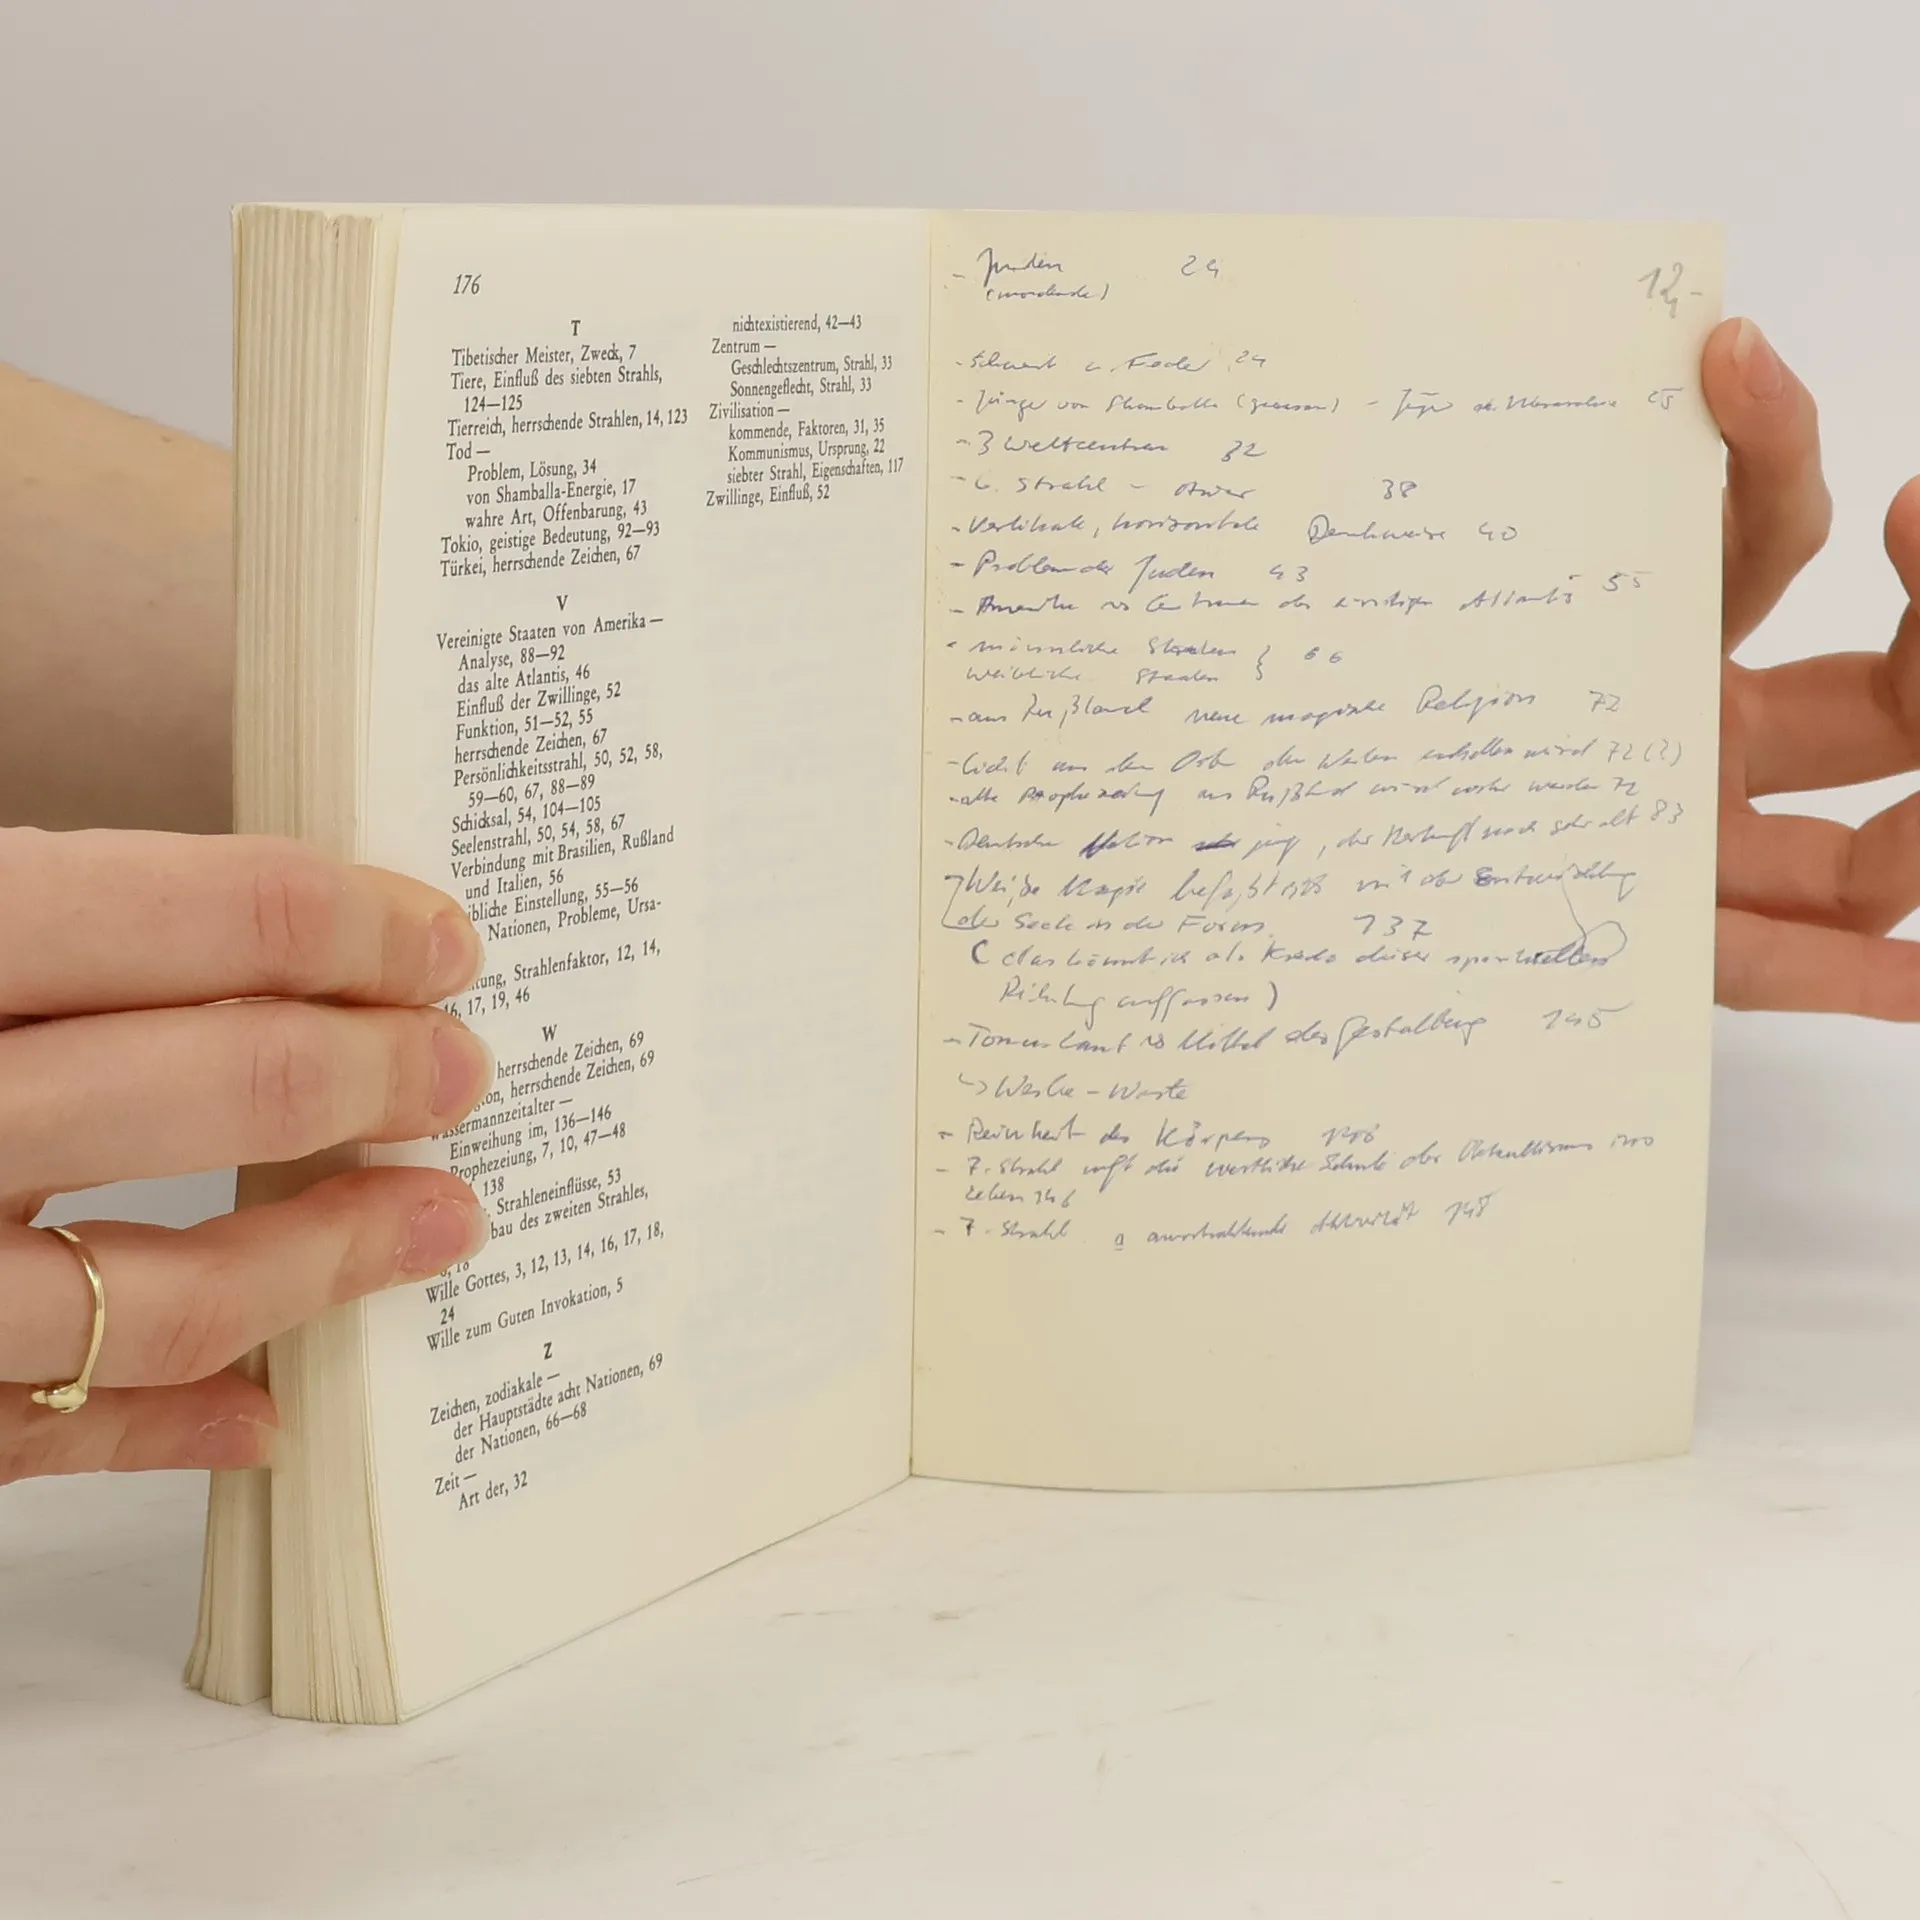 176
T
Tibetischer Meister, Zweck, 7
Tiere, Einfluß des siebten Strahls,
124—125
Tierreich, herrschende Strahlen, 14, 123
Tod —
Problem, Lösung, 34
von Shamballa-Energie, 17
wahre Art, Offenbarung, 43
Tokio, geistige Bedeutung, 92—93
Türkei, herrschende Zeichen, 67
V
Vereinigte Staaten von Amerika —
Analyse, 88—92
das alte Atlantis, 46
Einfluß der Zwillinge, 52
Funktion, 51—52, 55
herrschende Zeichen, 67
Persönlichkeitsstrahl, 50, 52, 58,
59—60, 67, 88—89
Schicksal, 54, 104—105
Seelenstrahl, 50, 54, 58, 67
Verbindung mit Brasilien, Rußland
und Italien, 56
ibliche Einstellung, 55—56
Nationen, Probleme, Ursa-
tung, Strahlenfaktor, 12, 14,
16, 17, 19, 46
W
herrschende Zeichen, 69
gton, herrschende Zeichen, 69
Wassermannzeitalter —
Einweihung im, 136—146
Prophezeiung, 7, 10, 47—48
138
Strahleneinflüsse, 53
bau des zweiten Strahles,
18
Wille Gottes, 3, 12, 13, 14, 16, 17, 18,
24
Wille zum Guten Invokation, 5
Z
Zeichen, zodiakale —
der Hauptstädte acht Nationen, 69
der Nationen, 66—68
Zeit —
Art der, 32
nichtexistierend, 42—43
Zentrum —
Geschlechtszentrum, Strahl, 33
Sonnengeflecht, Strahl, 33
Zivilisation —
kommende, Faktoren, 31, 35
Kommunismus, Ursprung, 22
siebter Strahl, Eigenschaften, 117
Zwillinge, Einfluß, 52
12,-
- Juden 24
- Schwert u. Feder 24
- Jünger von Shamballa 25
- 3 Weltzentren 32
- 6. Strahl - 38
- Vertikale, horizontale Denkweise 40
- Problem der Juden 43
- Amerika Centrum des einstigen Atlantis 55
- männliche Staaten } 66
weibliche Staaten
- aus Rußland neue magische Religion 72
- Licht aus dem Osten den Westen erhellen wird 72 (?)
- alte Prophezeiung aus Rußland wird wahr werden 72
- Deutsche Nation jung, der Herkunft nach sehr alt 83
Weiße Magie befaßt sich mit der Entwicklung
der Seele in der Form. 137
(das könnte ich als Kredo dieser spirituellen
Richtung auffassen)
- Ton u. Laut Mittel der Gestaltung 145
- Reinheit des Körpers 146
- 7. Strahl die westliche Schule des Okkultismus ins
Leben 146
- 7. Strahl ausstrahlende Aktivität 148